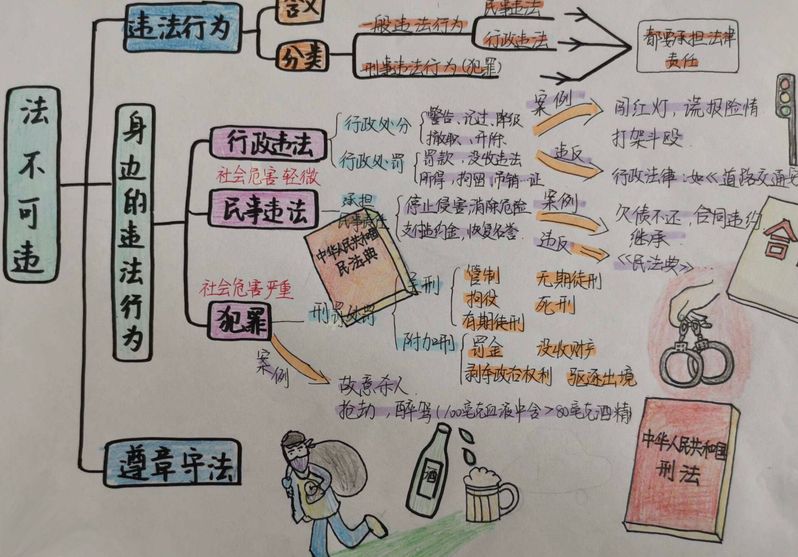 违法行为
含义
分类
一般违法行为
民事违法
行政违法
刑事违法行为(犯罪)
都要承担法律
责任
法不可违
身边的违法行为
行政违法
行政处分
警告、记过、降级
撤职、开除
行政处罚
罚款,没收违法
所得,拘留,吊销
证
案例
闯红灯,谎报险情
打架斗殴
违反
行政法律:如《道路交通安
社会危害轻微
民事违法
承担
民事责任
停止侵害,消除危险
支付违约金,恢复名誉
案例
欠债不还,合同违约
继承
违反
《民法典》
中华人民共和国
民法典
合
社会危害严重
犯罪
刑罚处罚
主刑
管制
拘役
有期徒刑
无期徒刑
死刑
附加刑
罚金
没收财产
剥夺政治权利
驱逐出境
案例
故意杀人
抢劫,醉驾(100毫克血液中含>80毫克酒精)
遵章守法
酒
中华人民共和国
刑法